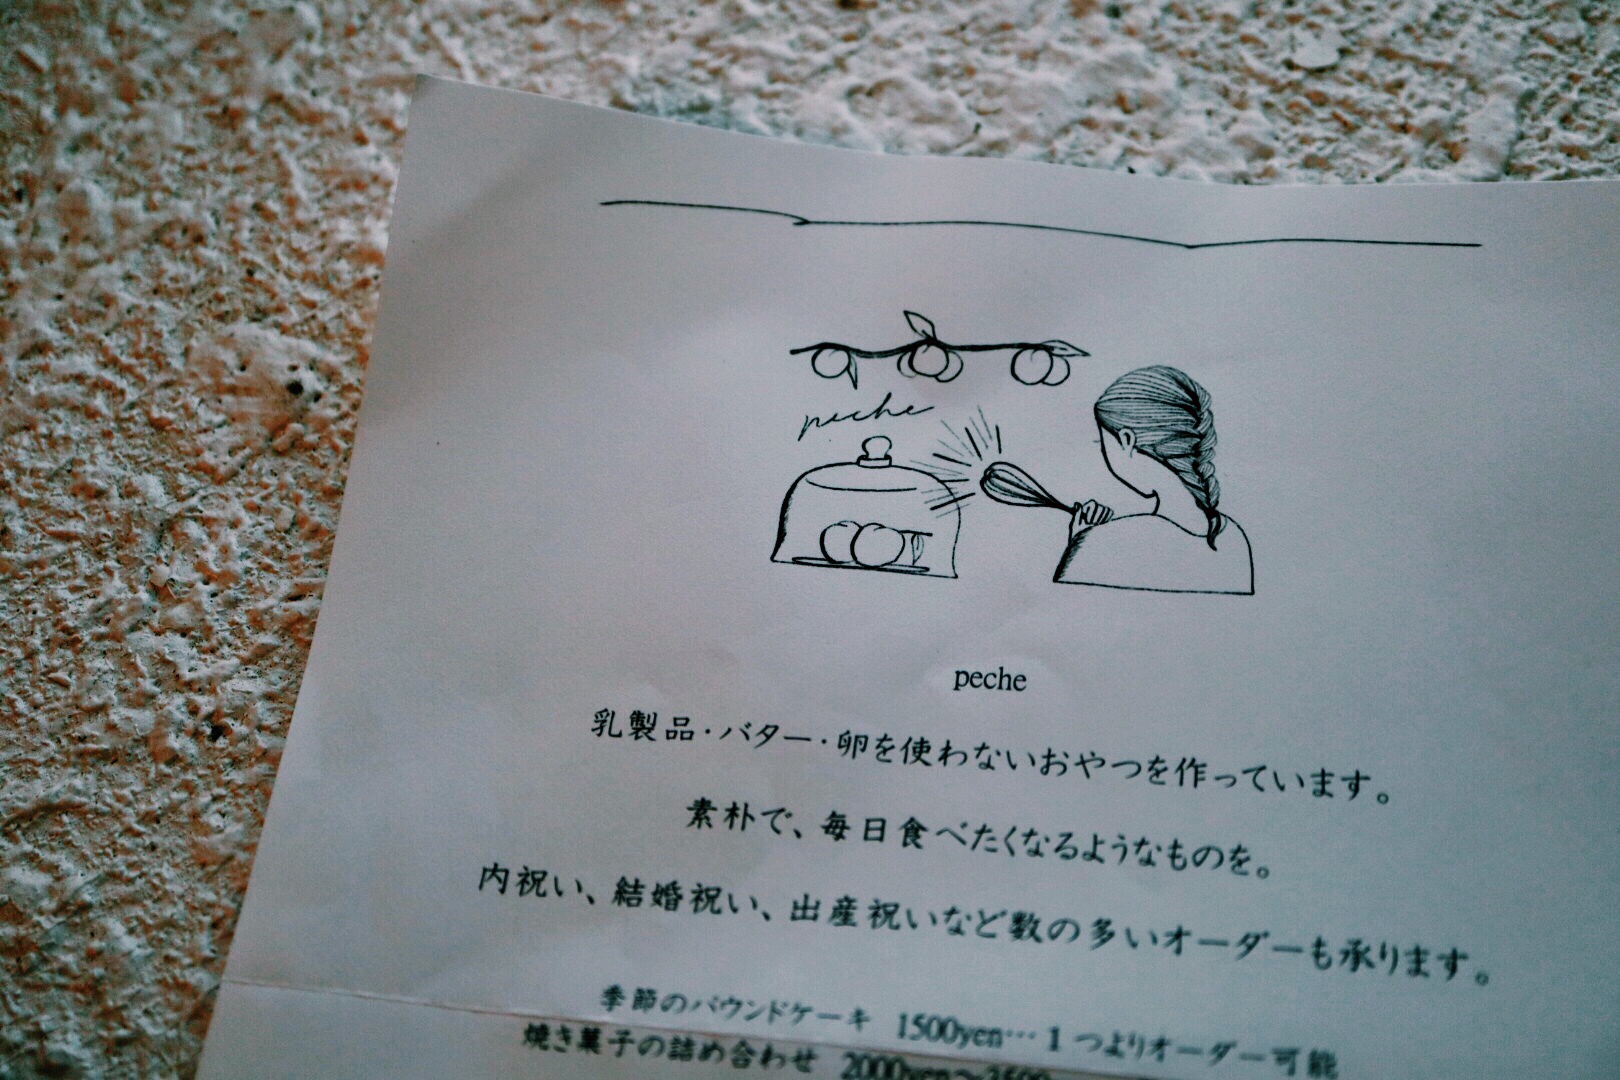 peche
peche
乳製品・バター・卵を使わないおやつを作っています。
素朴で、毎日食べたくなるようなものを。
内祝い、結婚祝い、出産祝いなど数の多いオーダーも承ります。
季節のパウンドケーキ 1500yen… 1つよりオーダー可能
焼き菓子の詰め合わせ 2000yen〜